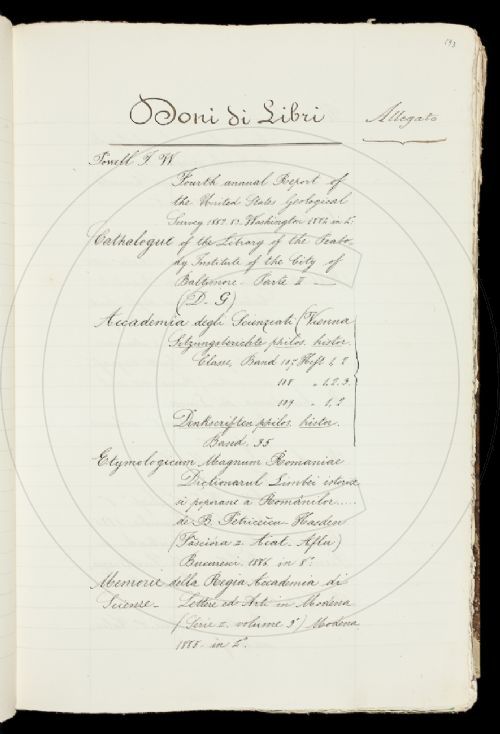 193
Doni di Libri
Allegato
Powell J. W
Fourth annual Report of
the United States Geological
Survey 1882 83. Washington 1884 in 4°.
Cathalogue of the Library of the Peabo-
dy Institute of the City of
Baltimore. Parte II —
(D-G)
Accademia degli Scienziati (Vienna
Sitzungsberichte philos. histor.
Classe, Band 107 Heft 1, 2
108 " 1, 2, 3.
109 " 1, 2
Denkscriften philos. histor.
Band. 35
Etymologicum Magnum Romaniae
Dictionarul Limbei istorice
si poporane a Românilor.....
de B. Petriceicu-Hasdeu
(Fasciora 2 Acat-Aflu)
Bucuresci 1886 in 8°:
Memorie della Regia Accademia di
Scienze - Lettere ed Arti in Modena
(Serie 2. volume 3°) Modena
1885 in 4°.